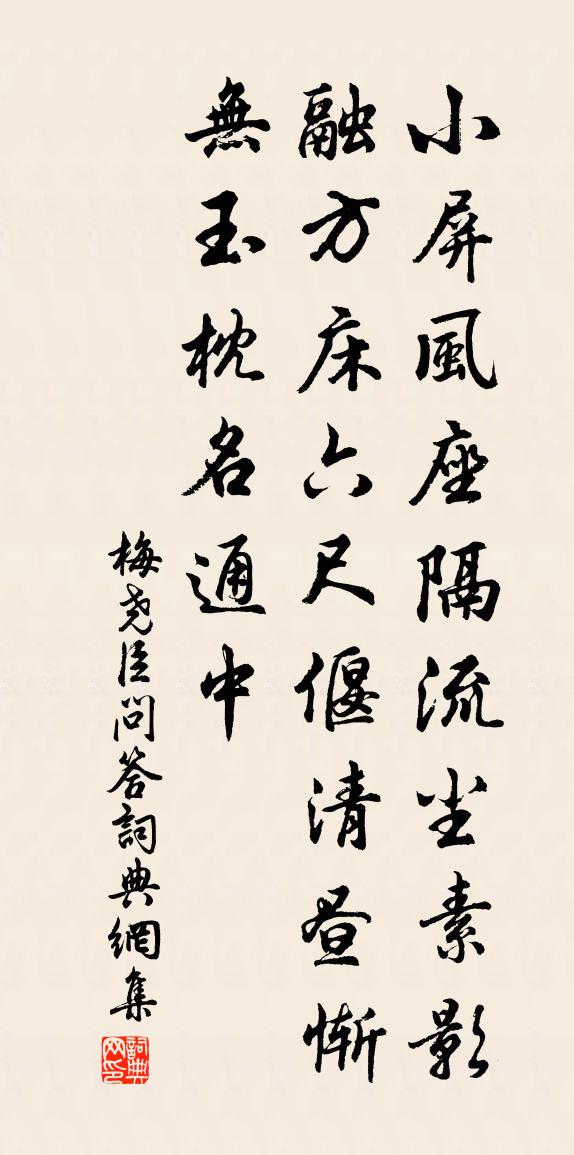 小屏風座隔流尘素影
融方床六尺偃清昼慚
無玉枕名通中
梅尧臣問答詞典網集
詞典网印